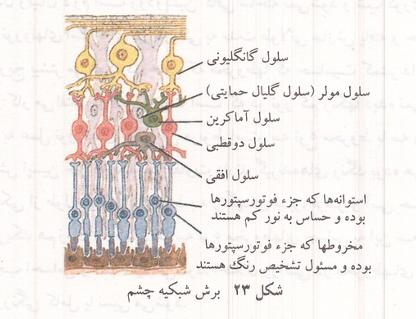 سلول گانگلیونی
سلول مولر (سلول گلیال حمایتی)
سلول آماکرین
سلول دوقطبی
سلول افقی
استوانه‌ها که جزء فوتورسپتورها
بوده و حساس به نور کم هستند
مخروطها که جزء فوتورسپتورها
بوده و مسئول تشخیص رنگ هستند
شکل ۲۳ برش شبکیه چشم